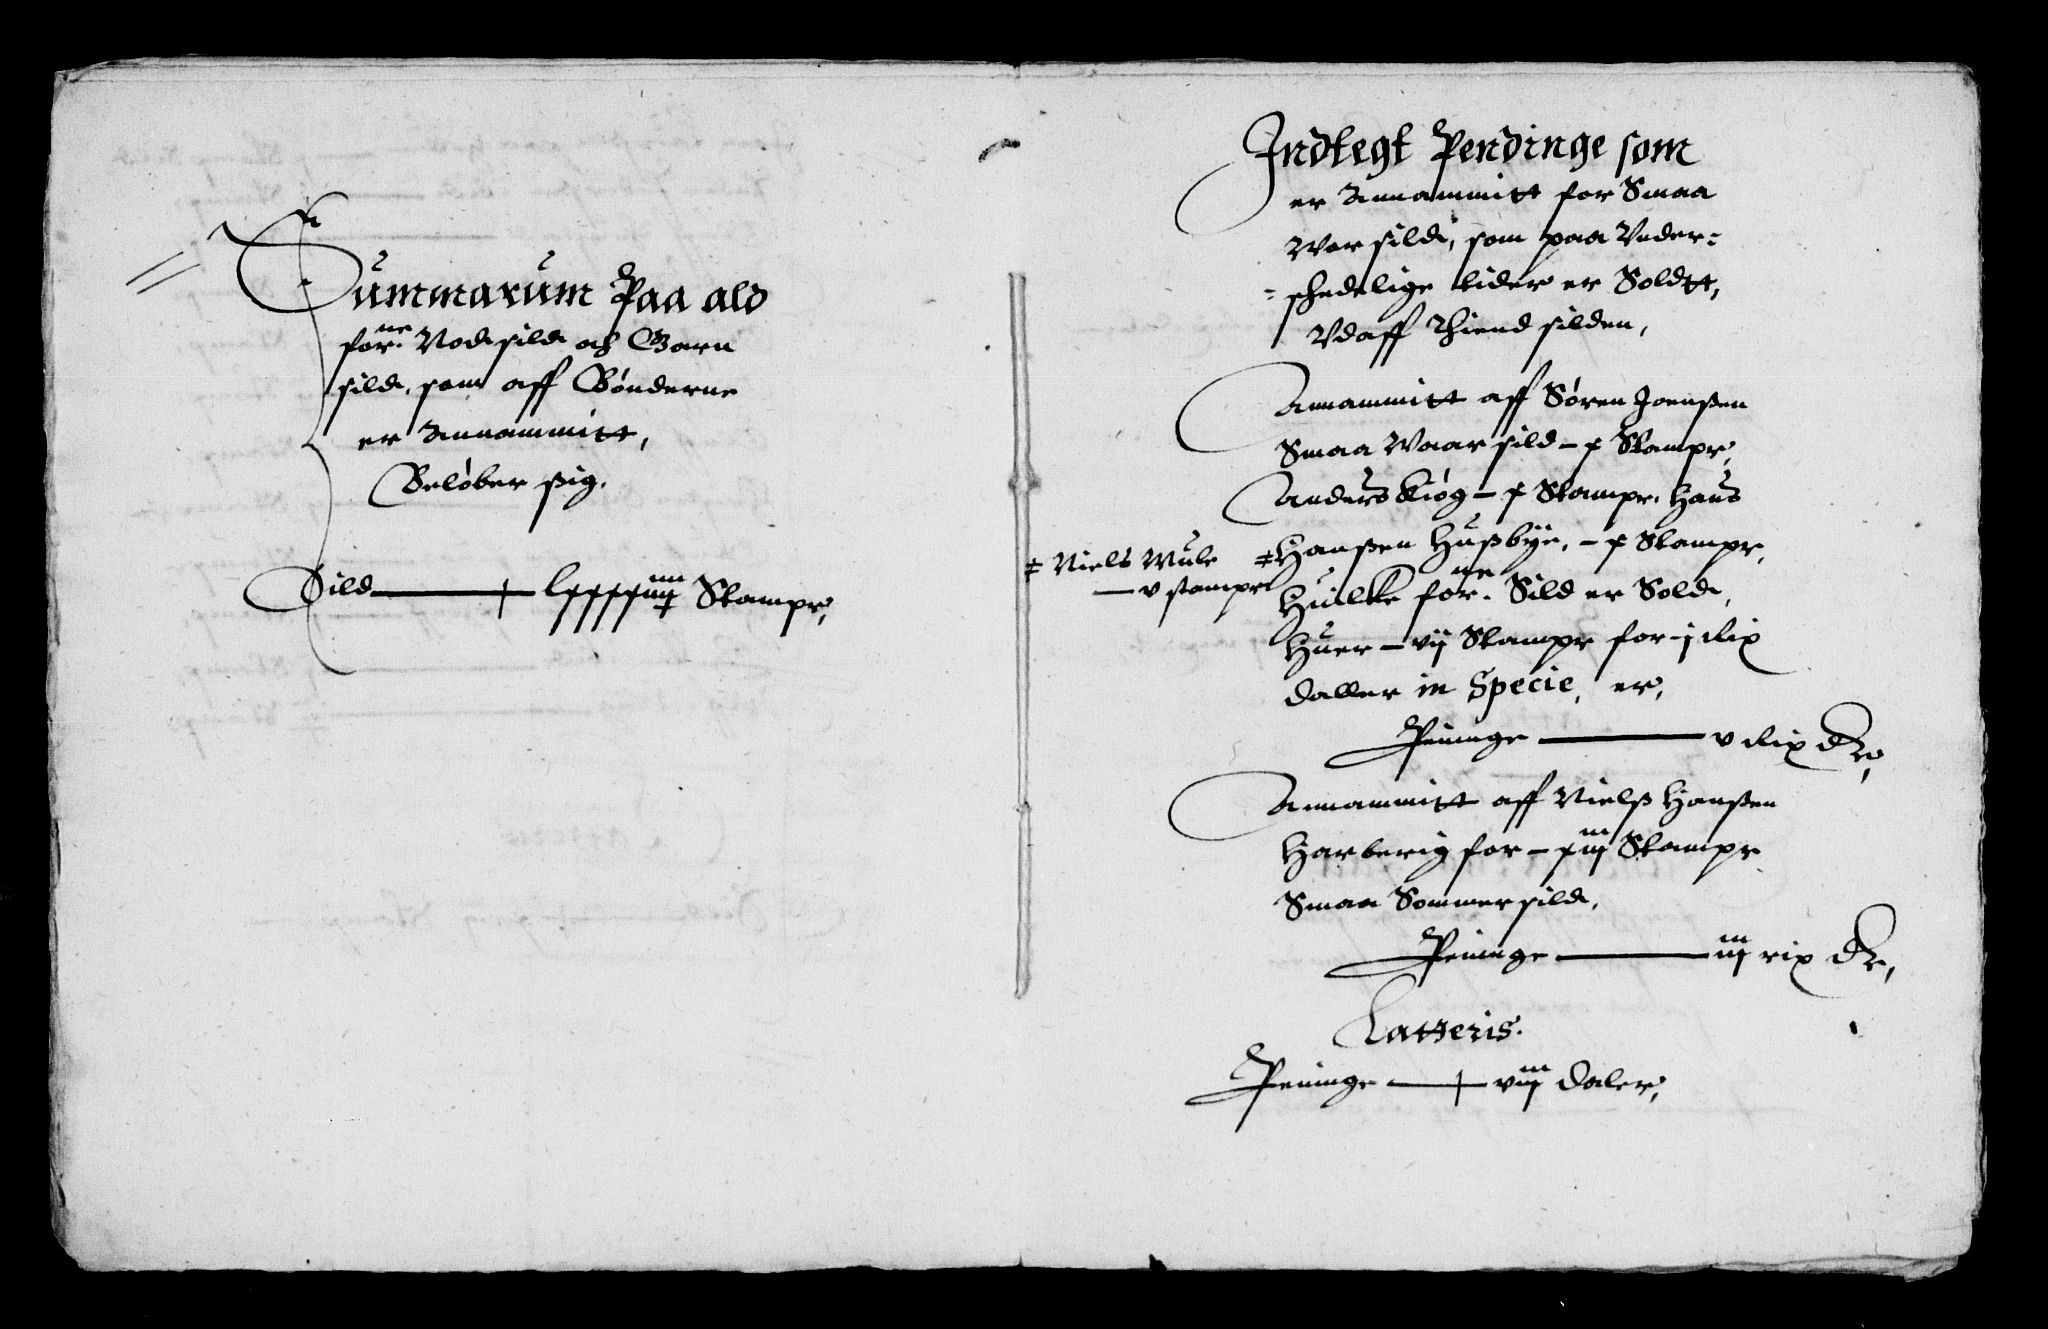 Summarum Paa ald
forne Vodsild och Garn
sild, som aff Bønderne
er Annammitt,
Beløber sig.
Sild — lxxxxiiii Stampr,
Indtegt Pendinge som
er Annammitt for Smaa
War sild, som paa Vnder-
-schedelige tider er Soldtt,
Vdaff Thiend silden,
Annammitt aff Søren Joenßen
Smaa Waar sild – x Stampr,
Anders Kiøg – x Stampr, Hans
‡ Hanßen Hußbye, – x Stampr,
‡ Niels Mule
— v stampr
Huilcke forne Sild er Sold,
Huer – vij Stampr for – j Rix
daller in Specie, er,
Peninge — v Rix dlr,
Annammitt aff Nielß Hanßen
Harberig for – xiij Stampr
Smaa Sommersild,
Peninge — iij rix dlr,
Latteris.
Peninge — viij daler,